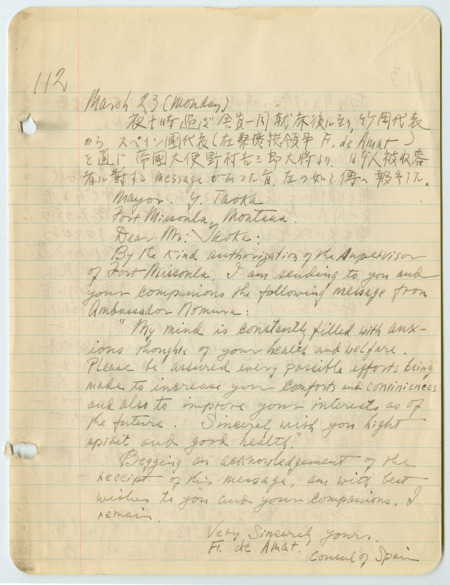 112
March 23 (Monday)
夜十時過ぎ 全員一同就床後に至り、竹岡代表
から、スペイン國代表（在桑港領事 F. de Amat）
を通じ 帝國大使野村吉三郎大将より、日本人被収容
者に對する message があった旨、左の如く傳へ報ぜらる。
Mayor. Y. Taoka
Fort Missoula, Montana.
Dear Mr. Taoka:
By the kind authorization of the Supervisor
of Fort Missoula, I am sending to you and
your companions the following message from
Ambassador Nomura:
"My mind is constantly filled with anx-
ious thoughts of your health and welfare.
Please be assured every possible efforts being
made to increase your comforts and conviniences
and also to improve your interests as of
the future. Sincerel wish you hight
spirit and good health."
Begging an acknowledgement of the
receipt of this message, am with best
wishes to you and your companions, I
remain
Very Sincerely yours.
F. de Amat.
Consul of Spain